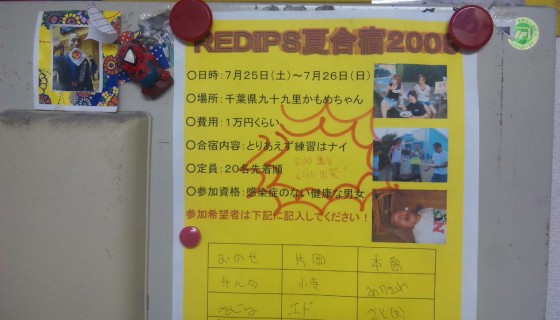 REDIPS夏合宿2009
〇日時：7月25日（土）～7月26日（日）
〇場所：千葉県九十九里かもめちゃん
〇費用：1万円くらい
〇合宿内容：とりあえず練習はナイ
〇定員：20名先着順
〇参加資格：感染症のない健康な男女
参加希望者は下記に記入してください！
おのせ 片岡 本島
小寺
エド